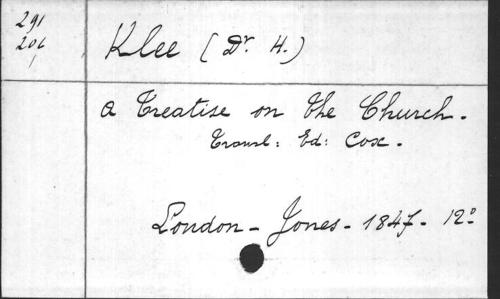 291
206
1
Klee (Dr. H.)
a Treatise on the Church.
Transl: Ed: Cox.
London - Jones - 1847 - 12º